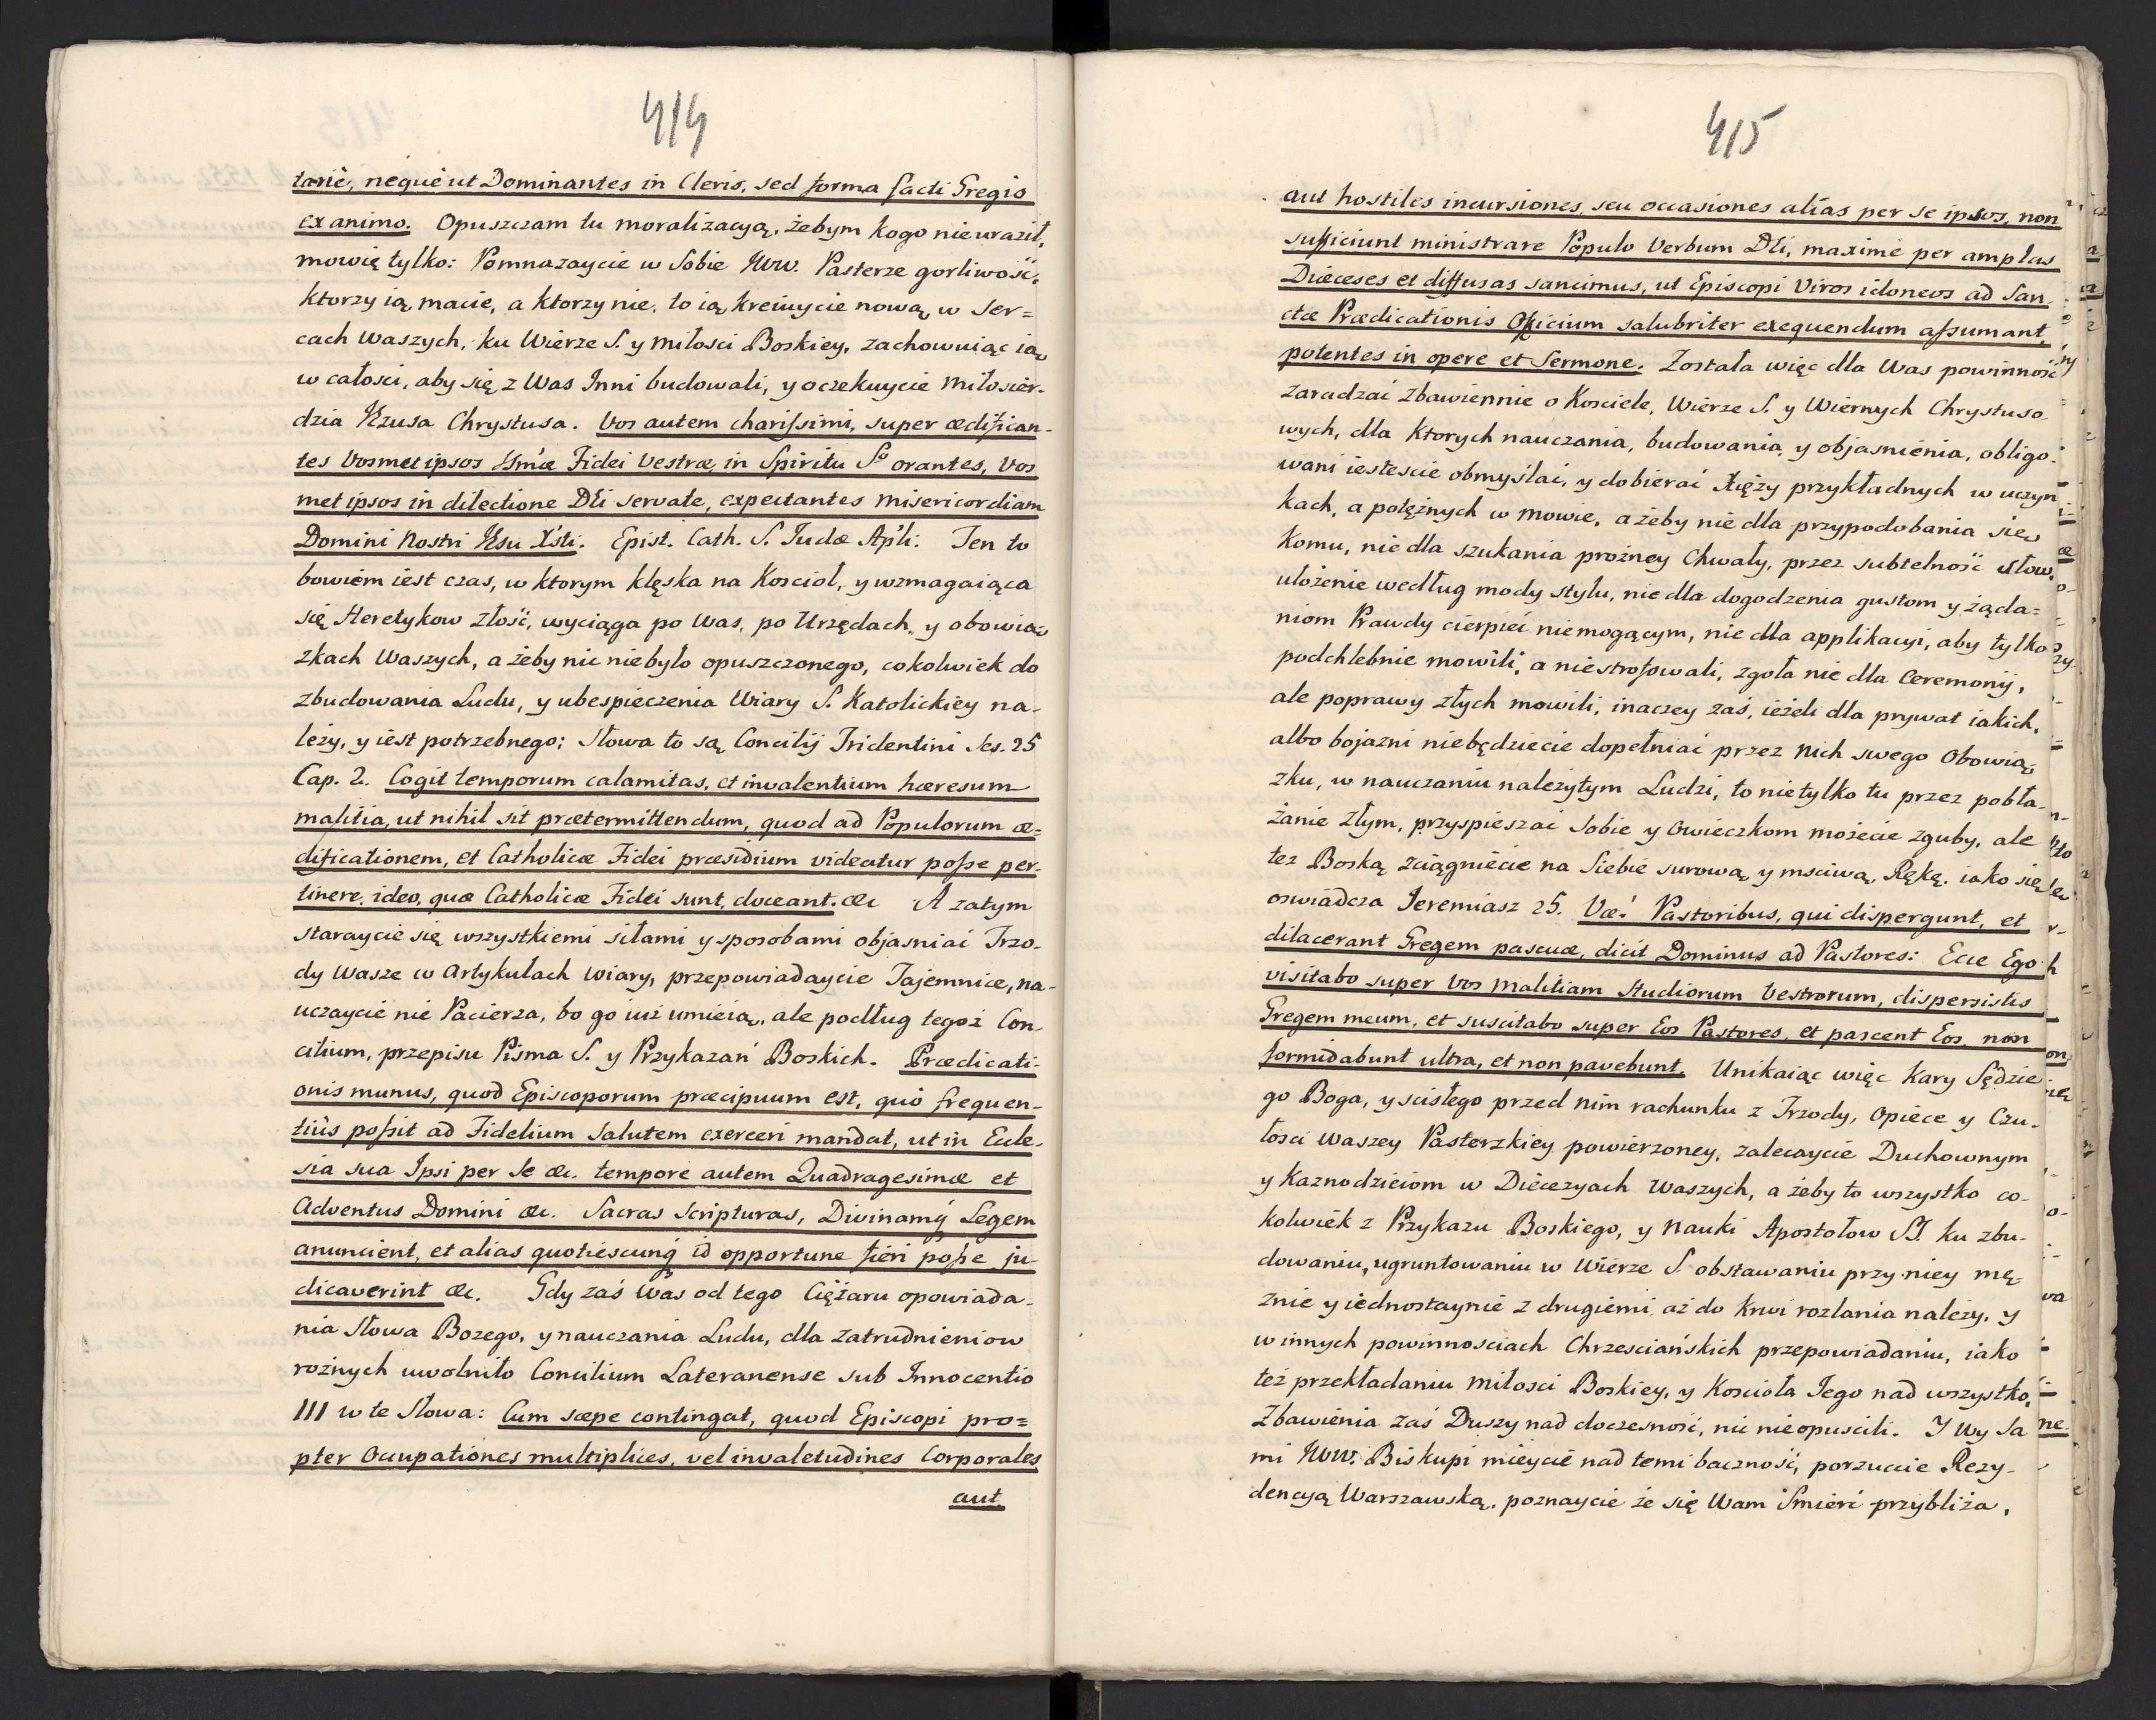 414
tarié, nequè ut Dominantes in Cleris, sed forma facti Gregis
ex animo. Opuszczam tu moralizacyą, żebym kogo nieuraził,
mowię tylko: Pomnazaycie w Sobie JWW. Pasterze gorliwość,
ktorzy ią macie, a ktorzy nie, to ią kreiuycie nową w Ser=
cach Waszych, ku Wierze S. y miłosci Boskiey, zachowuiąc ią
w całosci, aby się z Was Inni budowali, y oczekuycie miłosier-
dzia Jezusa Chrystusa. Vos autem charissimi, super ædifican-
tes Vosmet ipsos Ssmæ Fidei Vestræ, in Spiritu So orantes, Vos
met ipsos in dilectione DEi servate, expectantes misericordiam
Domini Nostri JEsu Xsti. Epist. Cath. S. Judæ Apli. Ten to
bowiem iest czas, w ktorym klęska na Kosciol, y wzmagaiąca
się Heretykow złość, wyciąga po Was, po Urzędach, y obowią=
zkach Waszych, a żeby nic niebyło opuszczonego, cokolwiek do
zbudowania Ludu, y ubespieczenia Wiary S. Katolickiey na-
leży, y iest potrzebnego; Słowa to są Concilij Tridentini Ses. 25
Cap. 2. Cogit temporum calamitas, et invalentium hæresum
malitia, ut nihil sit prætermittendum, quod ad Populorum æ=
dificationem, et Catholicæ Fidei præsidium videatur posse per-
tinere, ideo, quæ Catholicæ Fidei sunt, doceant. &c A zatym
staraycie się wszystkiemi siłami y sposobami objasniać Trzo-
dy Wasze w Artykułach Wiary, przepowiadaycie Tajemnice, na-
uczaycie nie Pacierza, bo go iuż umieią, ale podług tegoż Con-
cilium, przepisu Pisma S. y Przykazań Boskich. Prædicati-
onis munus, quod Episcoporum præcipuum est, quó frequen-
tiùs possit ad Fidelium Salutem exerceri mandat, ut in Eccle-
sia sua Ipsi per Se &c. tempore autem Quadragesimæ et
Adventus Domini &c. Sacras Scripturas, Divinamq Legem
anuncient, et alias quotiescunq id opportune fieri posse ju-
dicaverint &c. Gdy zaś Was od tego Ciężaru opowiada-
nia Słowa Bozego, y nauczania Ludu, dla zatrudnieniow
rożnych uwolniło Concilium Lateranense sub Innocentio
III w te Słowa: Cum sæpe contingat, quod Episcopi pro=
pter Occupationes multiplices, vel invaletudines Corporales
aut
415
aut hostiles incursiones, seu occasiones alias per se ipsos, non
sufficiunt ministrare Populo Verbum DEi, maximè per amplas
Diœceses et diffusas sancimus, ut Episcopi Viros idoneos ad San-
ctæ Prædicationis Officium salubriter exequendum assumant,
potentes in opere et Sermone. Została więc dla Was powinność
zaradzać zbawiennie o Kosciele, Wierze S. y Wiernych Chrystuso
wych, dla ktorych nauczania, budowania, y objasnienia, obligo-
wani iestescie obmyślać, y dobierać Xięży przykładnych w uczyn
kach, a potężnych w mowie, ażeby nie dla przypodobania się
komu, nie dla szukania prożney Chwały, przez subtelność słow,
ułożenie według mody stylu, nie dla dogodzenia gustom y żąda=
niom Prawdy cierpieć niemogącym, nie dla applikacyi, aby tylko
podchlebnie mowili, a niestrofowali, zgoła nie dla Ceremonij,
ale poprawy złych mowili, inaczey zaś, ieżeli dla prywat iakich,
albo bojazni niebędziecie dopełniać przez nich swego Obowią=
zku, w nauczaniu należytym Ludzi, to nietylko tu przez pobła-
żanie złym, przyspieszać Sobie y Owieczkom możecie zguby, ale
tez Boską zciągniecie na Siebie surową y msciwą Rękę, iako się
oswiadcza Jeremiasz 25. Væ! Pastoribus, qui dispergunt, et
dilacerant Gregem pascuæ, dicit Dominus ad Pastores: Ecce Ego
visitabo super Vos malitiam Studiorum Vestrorum, dispersistis
Gregem meum, et suscitabo super Eos Pastores, et pascent Eos, non
formidabunt ultra, et non pavebunt. Unikaiąc więc Kary Sędzie
go Boga, y scisłego przed nim rachunku z Trzody, Opiece y Czu-
łosci Waszey Pasterzkiey powierzoney, zalecaycie Duchownym
y Kaznodzieiom w Diecezyach Waszych, a żeby to wszystko co-
kolwiek z Przykazu Boskiego, y Nauki Apostołow SS. ku zbu-
dowaniu, ugruntowaniu w Wierze S. obstawaniu przy niey mę-
znie y iednostaynie z drugiemi, aż do krwi rozlania należy, y
w innych powinnosciach Chrzesciańskich przepowiadaniu, iako
też przekładaniu miłosci Boskiey, y Koscioła Jego nad wszystko,
Zbawienia zaś Duszy nad doczesność, nic nieopuscili. Y Wy Sa
mi JWW. Biskupi mieycie nad temi baczność, porzuccie Rezy-
dencyą Warszawską, poznaycie że się Wam Smierć przybliża,